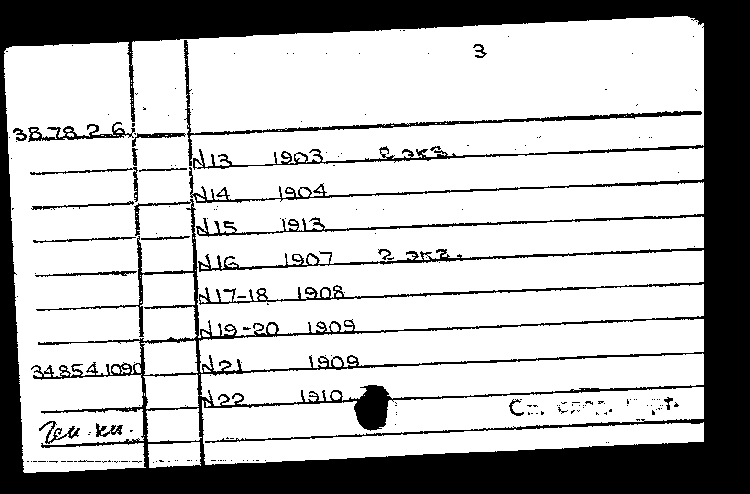 3
38.78.2 6
N13 1903 2 экз.
N14 1904
N15 1913
N16 1907 2 экз.
N17-18 1908
N19-20 1909
34.854.1090 N21 1909
N22 1910
См. след. карт.